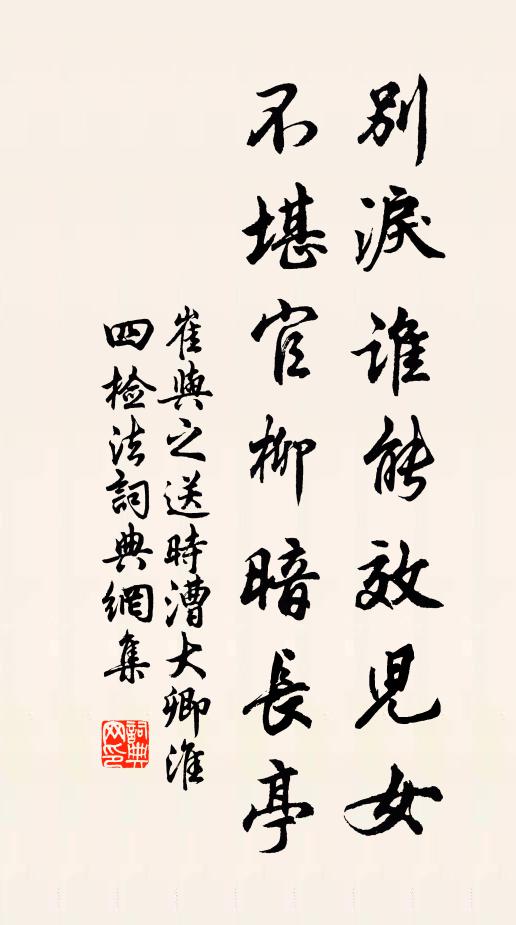 別淚誰能效兒女
不堪官柳暗長亭
崔與之送時漕大卿淮
四檢法詞典網集
詞典
网印